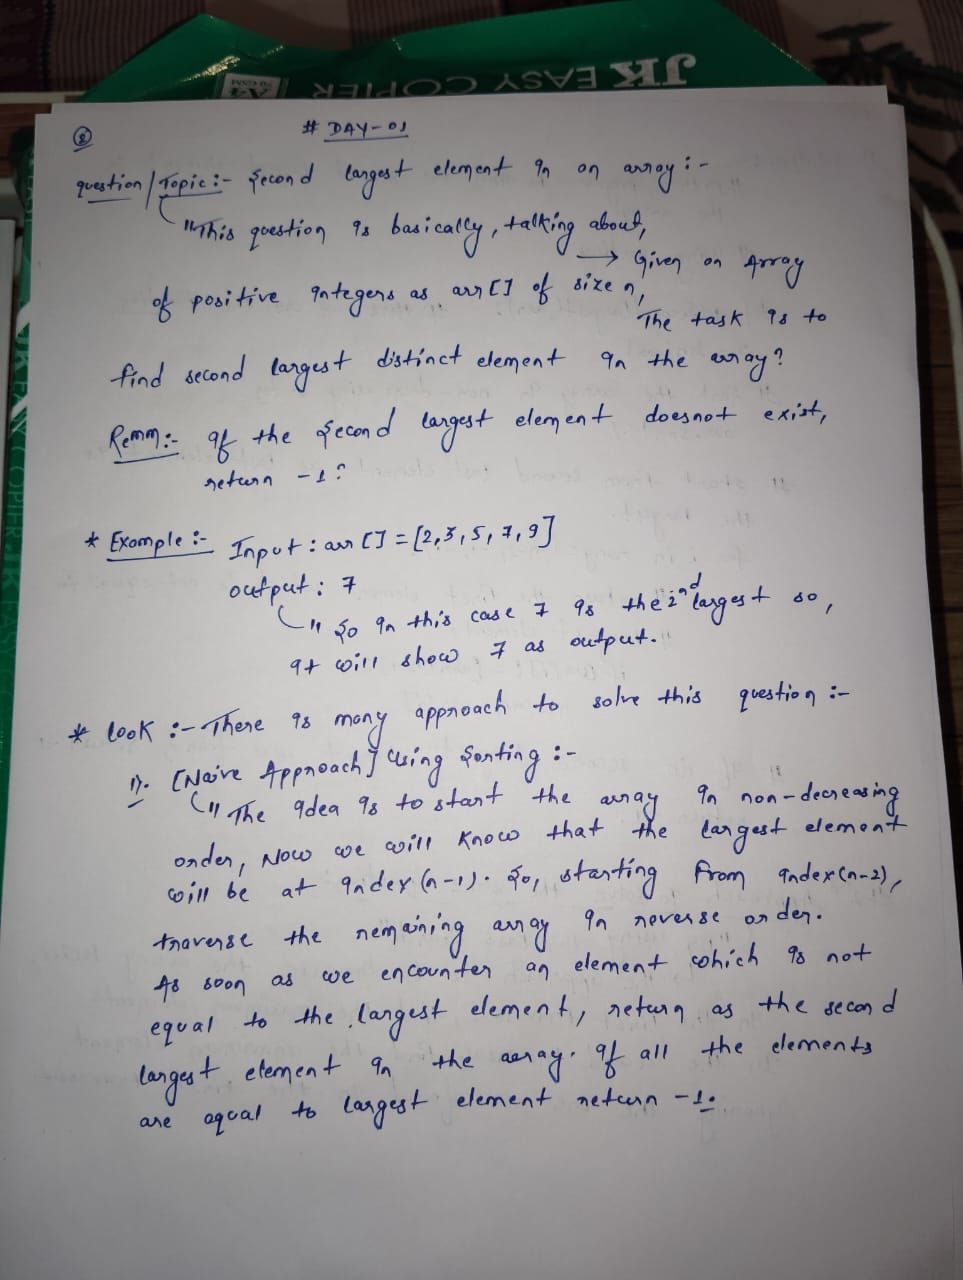 JK EASY COPIER
A4
②
# DAY-01
question/Topic:- Second largest element in an array:-
"This question is basically, talking about,
→ Given an Array
of positive integers as arr[] of size n,
The task is to
find second largest distinct element in the array?
Remm:- if the second largest element doesnot exist,
return -1?
* Example:- Input: arr[] = [2,3,5,7,9]
output: 7
" So in this case 7 is the 2nd largest so,
it will show 7 as output.
* look:- There is many approach to solve this question:-
1). [Naive Approach] Using Sorting:-
" The idea is to start the array in non-decreasing
order, Now we will know that the largest element
will be at index(n-1). So, starting from index(n-2),
traverse the remaining array in reverse order.
As soon as we encounter an element which is not
equal to the largest element, return as the second
largest element in the array. if all the elements
are equal to largest element return -1.